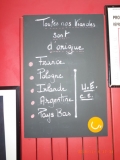 Toutes nos viandes
sont
d'origine
France
Pologne
Irlande
Argentine
Pays Bas
U.E.